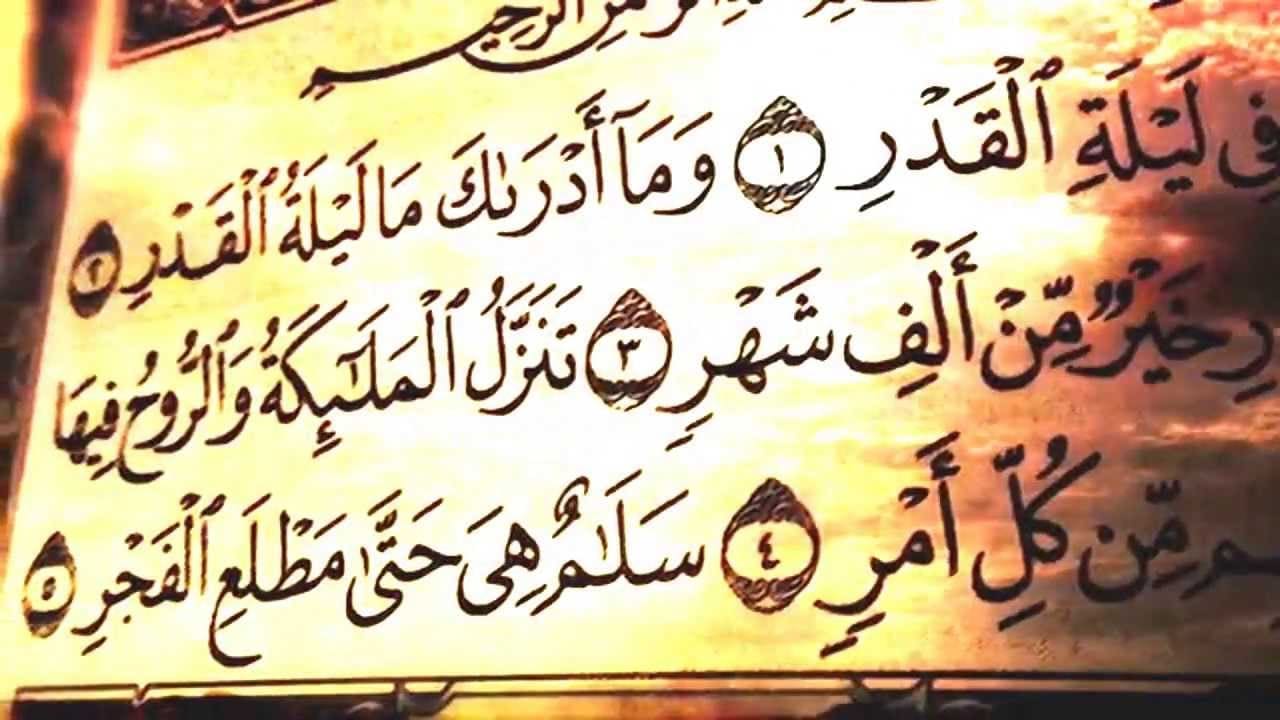 ٱلرَّحِيمِ
فِى لَيْلَةِ ٱلْقَدْرِ ١ وَمَآ أَدْرَىٰكَ مَا لَيْلَةُ ٱلْقَدْرِ ٢
خَيْرٌ مِّنْ أَلْفِ شَهْرٍ ٣ تَنَزَّلُ ٱلْمَلَـٰٓئِكَةُ وَٱلرُّوحُ فِيهَا
مِّن كُلِّ أَمْرٍ ٤ سَلَـٰمٌ هِىَ حَتَّىٰ مَطْلَعِ ٱلْفَجْرِ ٥